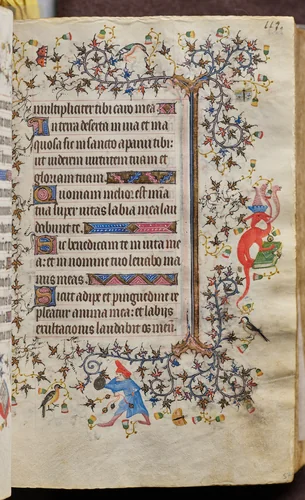 119.
multipliciter tibi caro mea
In terra deserta in uia et in a
quosa sic in sancto apparui tibi:
ut uiderem uirtutem tuam et
gloriam tuam.
Quoniam melior est mia
tua super uitas labia mea lau
dabunt te.
Sic benedicam te in uita me
a: et in nomine tuo leuabo ma
nus meas.
Sicut adipe et pinguedine re
pleatur anima mea: et labijs
exultacionis laudabit os meū.